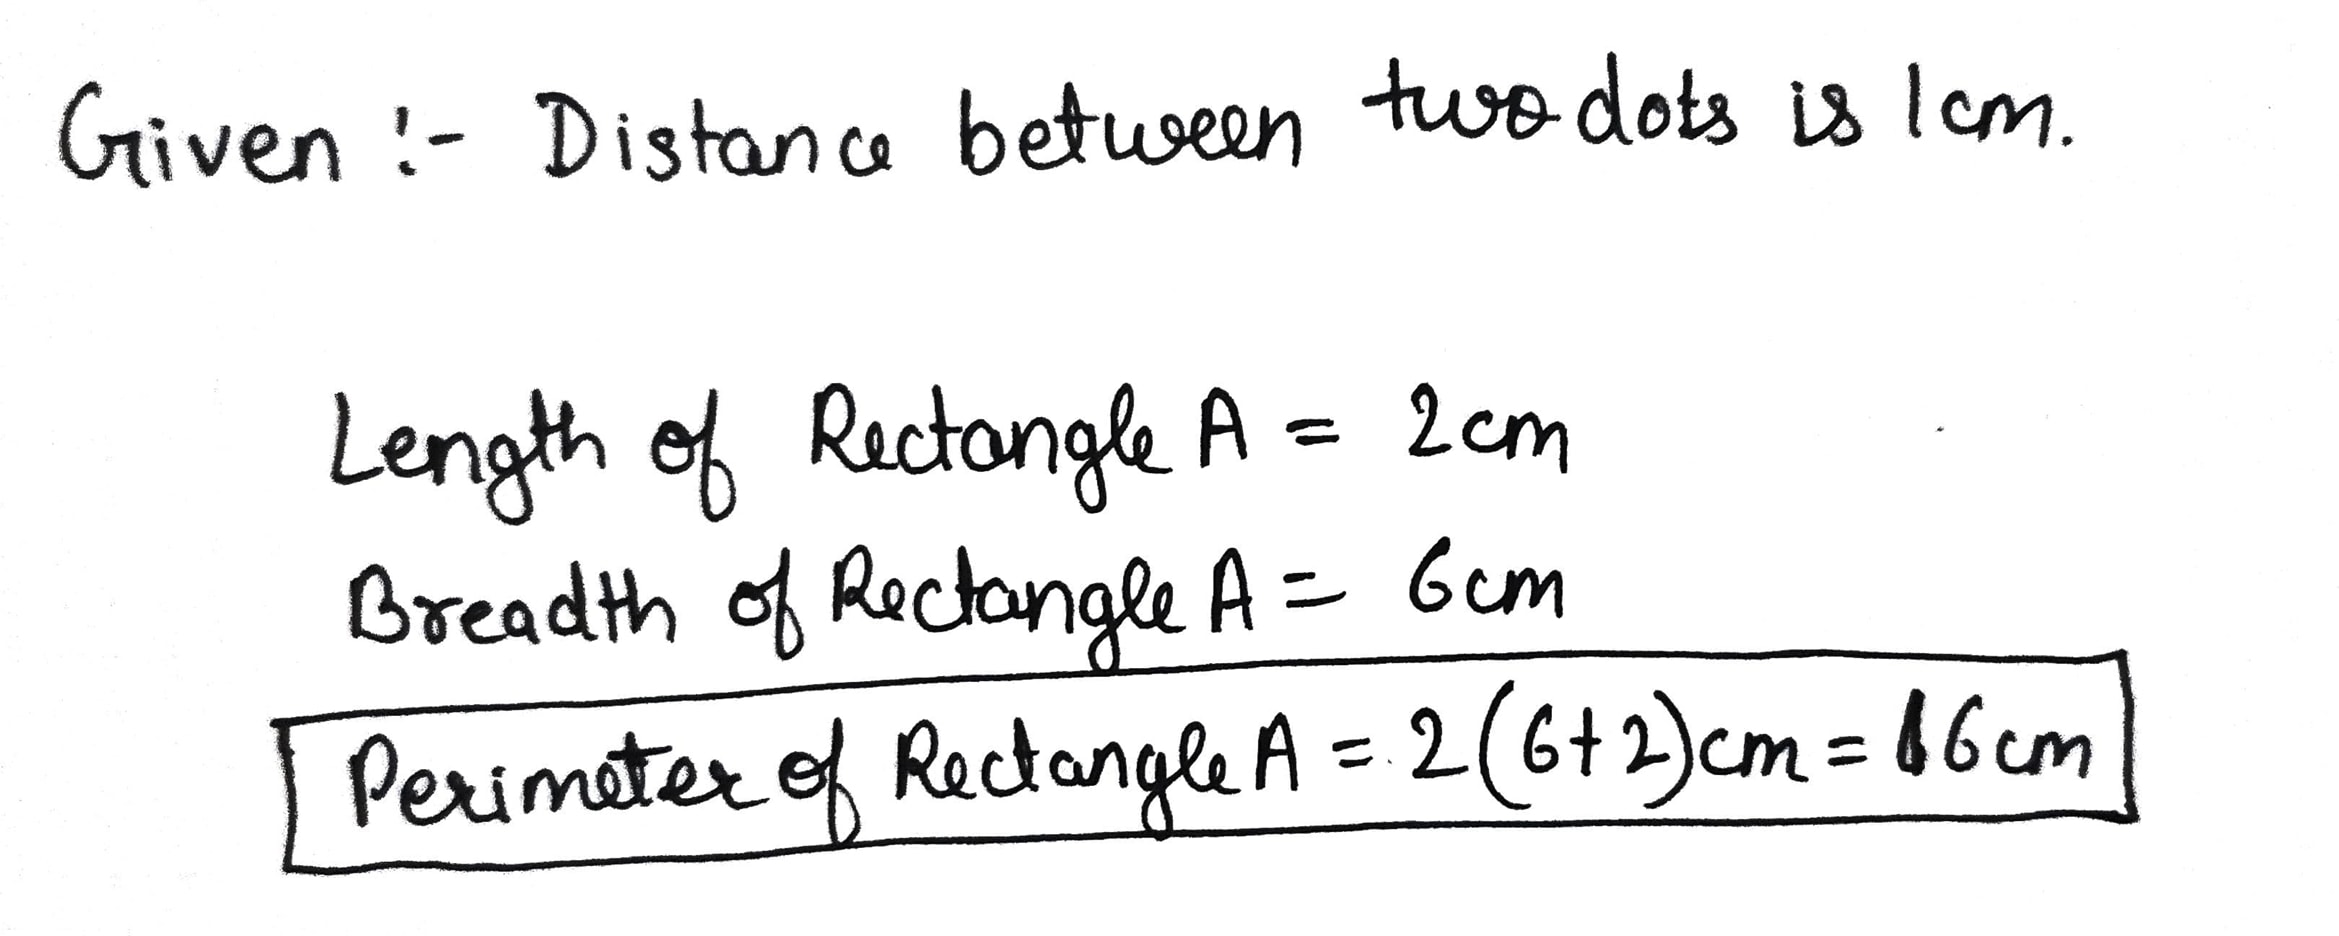 Given :- Distance between two dots is 1cm.
Length of Rectangle A = 2cm
Breadth of Rectangle A = 6cm
Perimeter of Rectangle A = 2(6+2)cm = 16cm